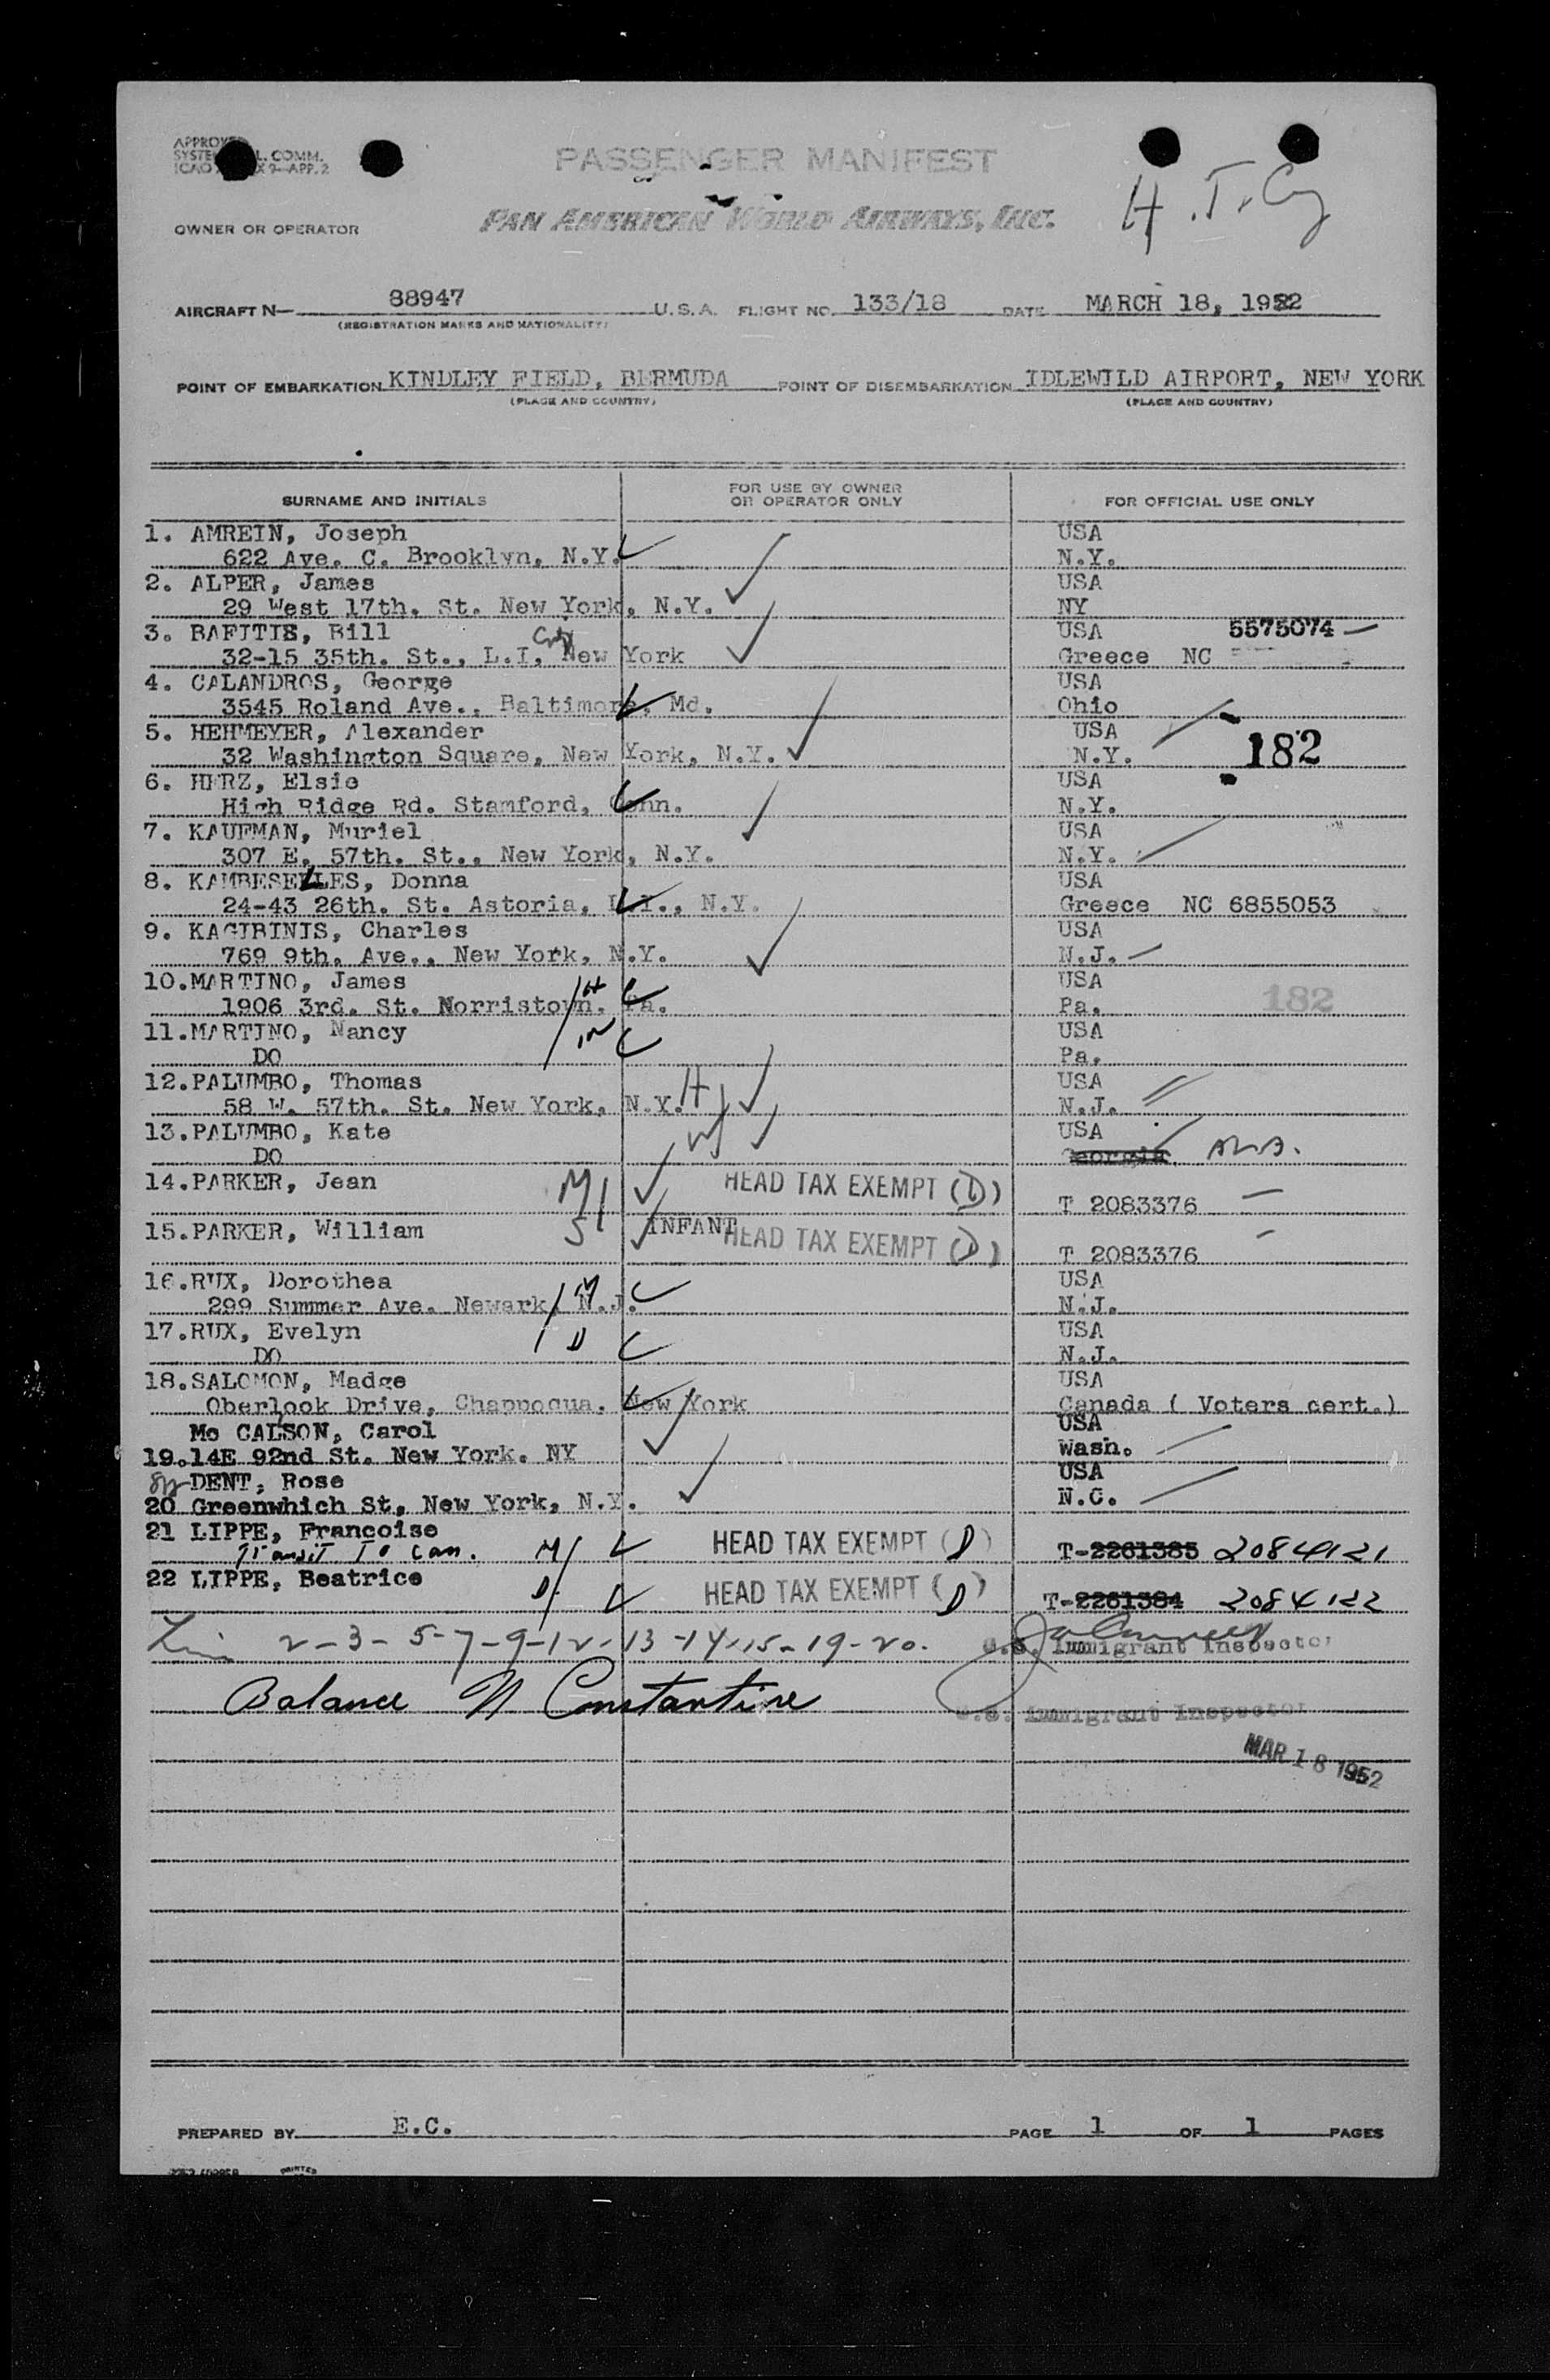 PASSENGER MANIFEST
L. COMM.
9-APP. 2
H.
OWNER OR OPERATOR PAN AMERICAN WORLD AIRWAYS, INC.
AIRCRAFT N- 88947 U.S.A. FLIGHT NO. 133/18 DATE MARCH 18, 1952
(REGISTRATION MARKS AND NATIONALITY)
POINT OF EMBARKATION KINDLEY FIELD, BERMUDA POINT OF DISEMBARKATION IDLEWILD AIRPORT, NEW YORK
(PLACE AND COUNTRY) (PLACE AND COUNTRY)
SURNAME AND INITIALS FOR USE BY OWNER OR OPERATOR ONLY FOR OFFICIAL USE ONLY
1. AMREIN, Joseph USA
622 Ave. C. Brooklyn, N.Y. N.Y.
2. ALPER, James USA
29 West 17th. St. New York, N.Y. NY
3. BAFITIS, Bill USA 5575074
32-15 35th. St., L.I. City, New York Greece NC
4. CALANDROS, George USA
3545 Roland Ave., Baltimore, Md. Ohio
5. HEHMEYER, Alexander USA
32 Washington Square, New York, N.Y. N.Y. 182
6. HERZ, Elsie USA
High Ridge Rd. Stamford, Conn. N.Y.
7. KAUFMAN, Muriel USA
307 E. 57th. St., New York, N.Y. N.Y.
8. KAMBESELLES, Donna USA
24-43 26th. St. Astoria, L.I., N.Y. Greece NC 6855053
9. KAGIBINIS, Charles USA
769 9th. Ave., New York, N.Y. N.J.
10. MARTINO, James USA
1906 3rd. St. Norristown, Pa. H Pa. 182
11. MARTINO, Nancy W USA
DO Pa.
12. PALUMBO, Thomas H USA
58 W. 57th. St. New York, N.Y. N.J.
13. PALUMBO, Kate W USA
DO Georgia ALA.
14. PARKER, Jean M HEAD TAX EXEMPT (D)
T 2083376
15. PARKER, William S INFANT HEAD TAX EXEMPT (D)
T 2083376
16. RUX, Dorothea USA
299 Summer Ave. Newark, N.J. M N.J.
17. RUX, Evelyn D USA
DO N.J.
18. SALOMON, Madge USA
Oberlook Drive, Chappoqua, New York Canada ( Voters cert.)
Mc CALSON, Carol USA
19. 14E 92nd St. New York. NY Wash.
DENT, Rose USA
20 Greenwhich St, New York, N.Y. N.C.
21 LIPPE, Francoise HEAD TAX EXEMPT (D)
Transit To Can. M T-2261385 2084121
22 LIPPE, Beatrice D HEAD TAX EXEMPT (D)
T-2261384 2084122
2-3-5-7-9-12-13-14-15-19-20. U.S. Immigrant Inspector
Balance N Constantine
U.S. Immigrant Inspector
MAR 18 1952
PREPARED BY E.C. PAGE 1 OF 1 PAGES
PRINTED